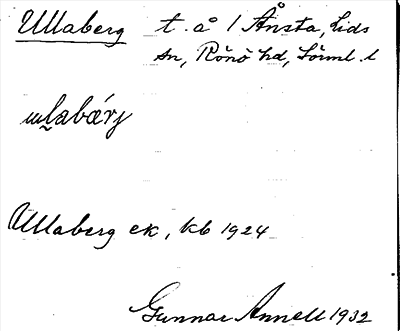 Ullaberg t. å 1 Ånsta, Lids
sn, Rönö hd, Sörml. l
ɯl̬abǽrj
Ullaberg ek, kb 1924
Gunnar Annell 1932